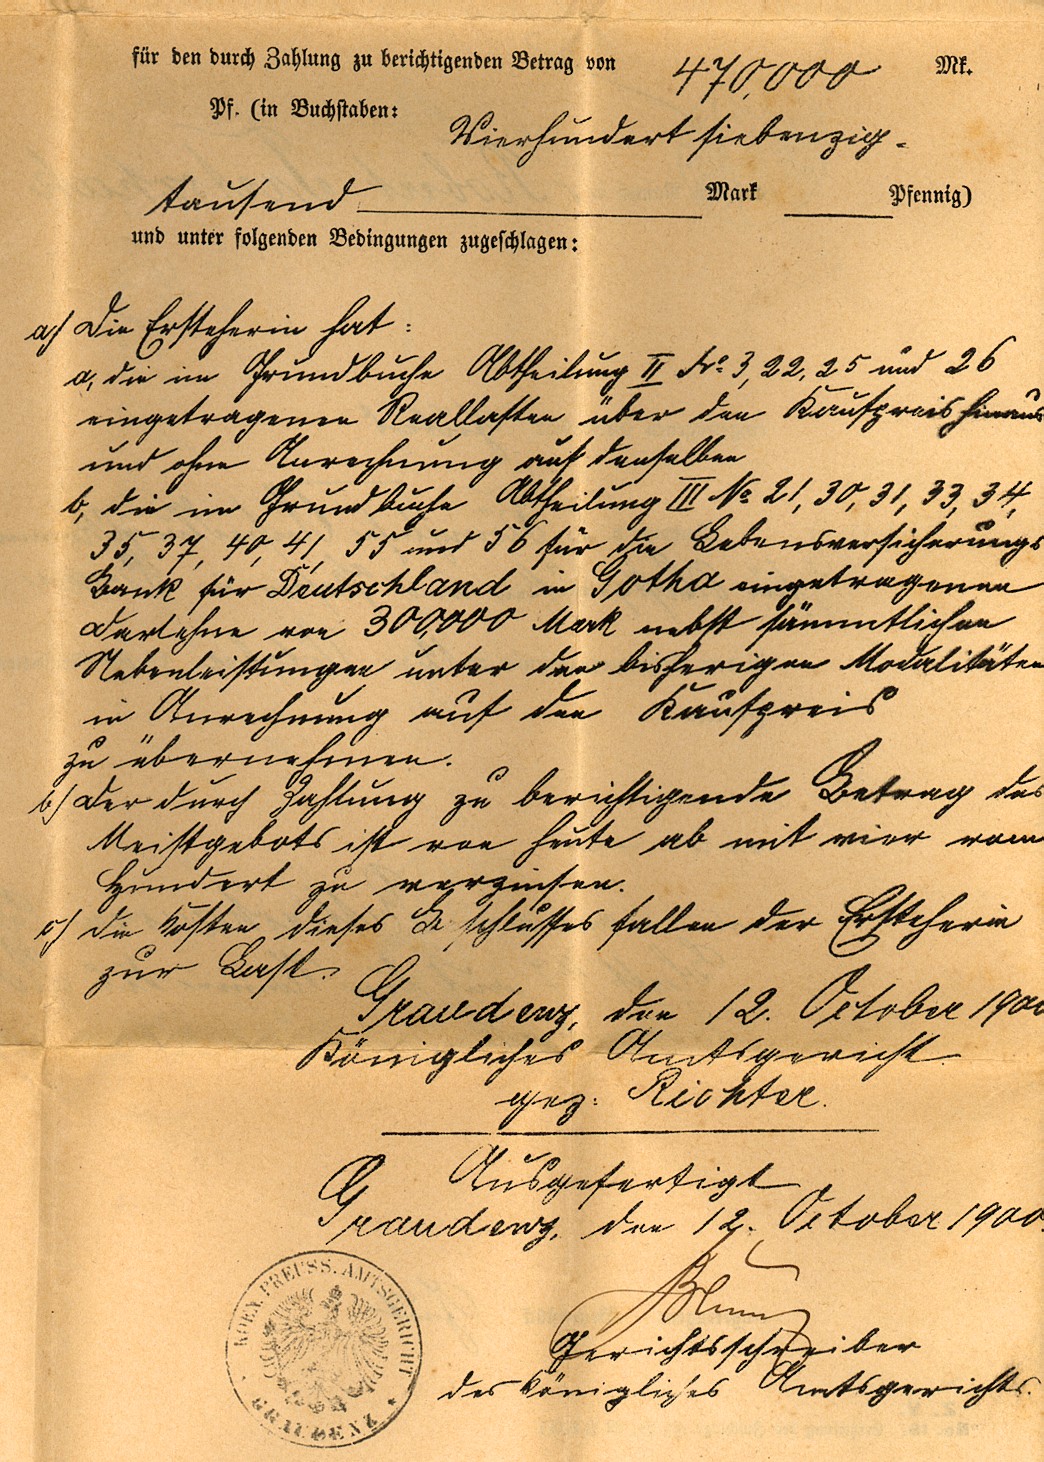 für den durch Zahlung zu berichtigenden Betrag von 470,000 Mk.
Pf. (in Buchstaben:
Vierhundert siebenzig-
tausend Mark Pfennig)
und unter folgenden Bedingungen zugeschlagen:
a/ Die Ersteherin hat:
a, die im Grundbuche Abtheilung II No 3, 22, 25 und 26
eingetragenen Reallasten über den Kaufpreis hinaus
und ohne Anrechnung auf denselben
b, die im Grundbuche Abtheilung III No 21, 30, 31, 33, 34,
35, 37, 40, 41, 55 und 56 für die Lebensversicherungs
Bank für Deutschland in Gotha eingetragenen
Darlehne von 300,000 Mark nebst sämmtlichen
Nebenleistungen unter den bisherigen Modalitäten
in Anrechnung auf den Kaufpreis
zu übernehmen.
b/ Der durch Zahlung zu berichtigende Betrag des
Meistgebots ist von heute ab mit vier vom
Hundert zu verzinsen.
c/ Die Kosten dieses Beschlusses fallen der Ersteherin
zur Last.
Graudenz, den 12. October 1900
Königliches Amtsgericht
gez: Richter.
Ausgefertigt
Graudenz, den 12. October 1900.
Gerichtsschreiber
des Königlichen Amtsgerichts.
KOEN. PREUSS. AMTSGERICHT
GRAUDENZ